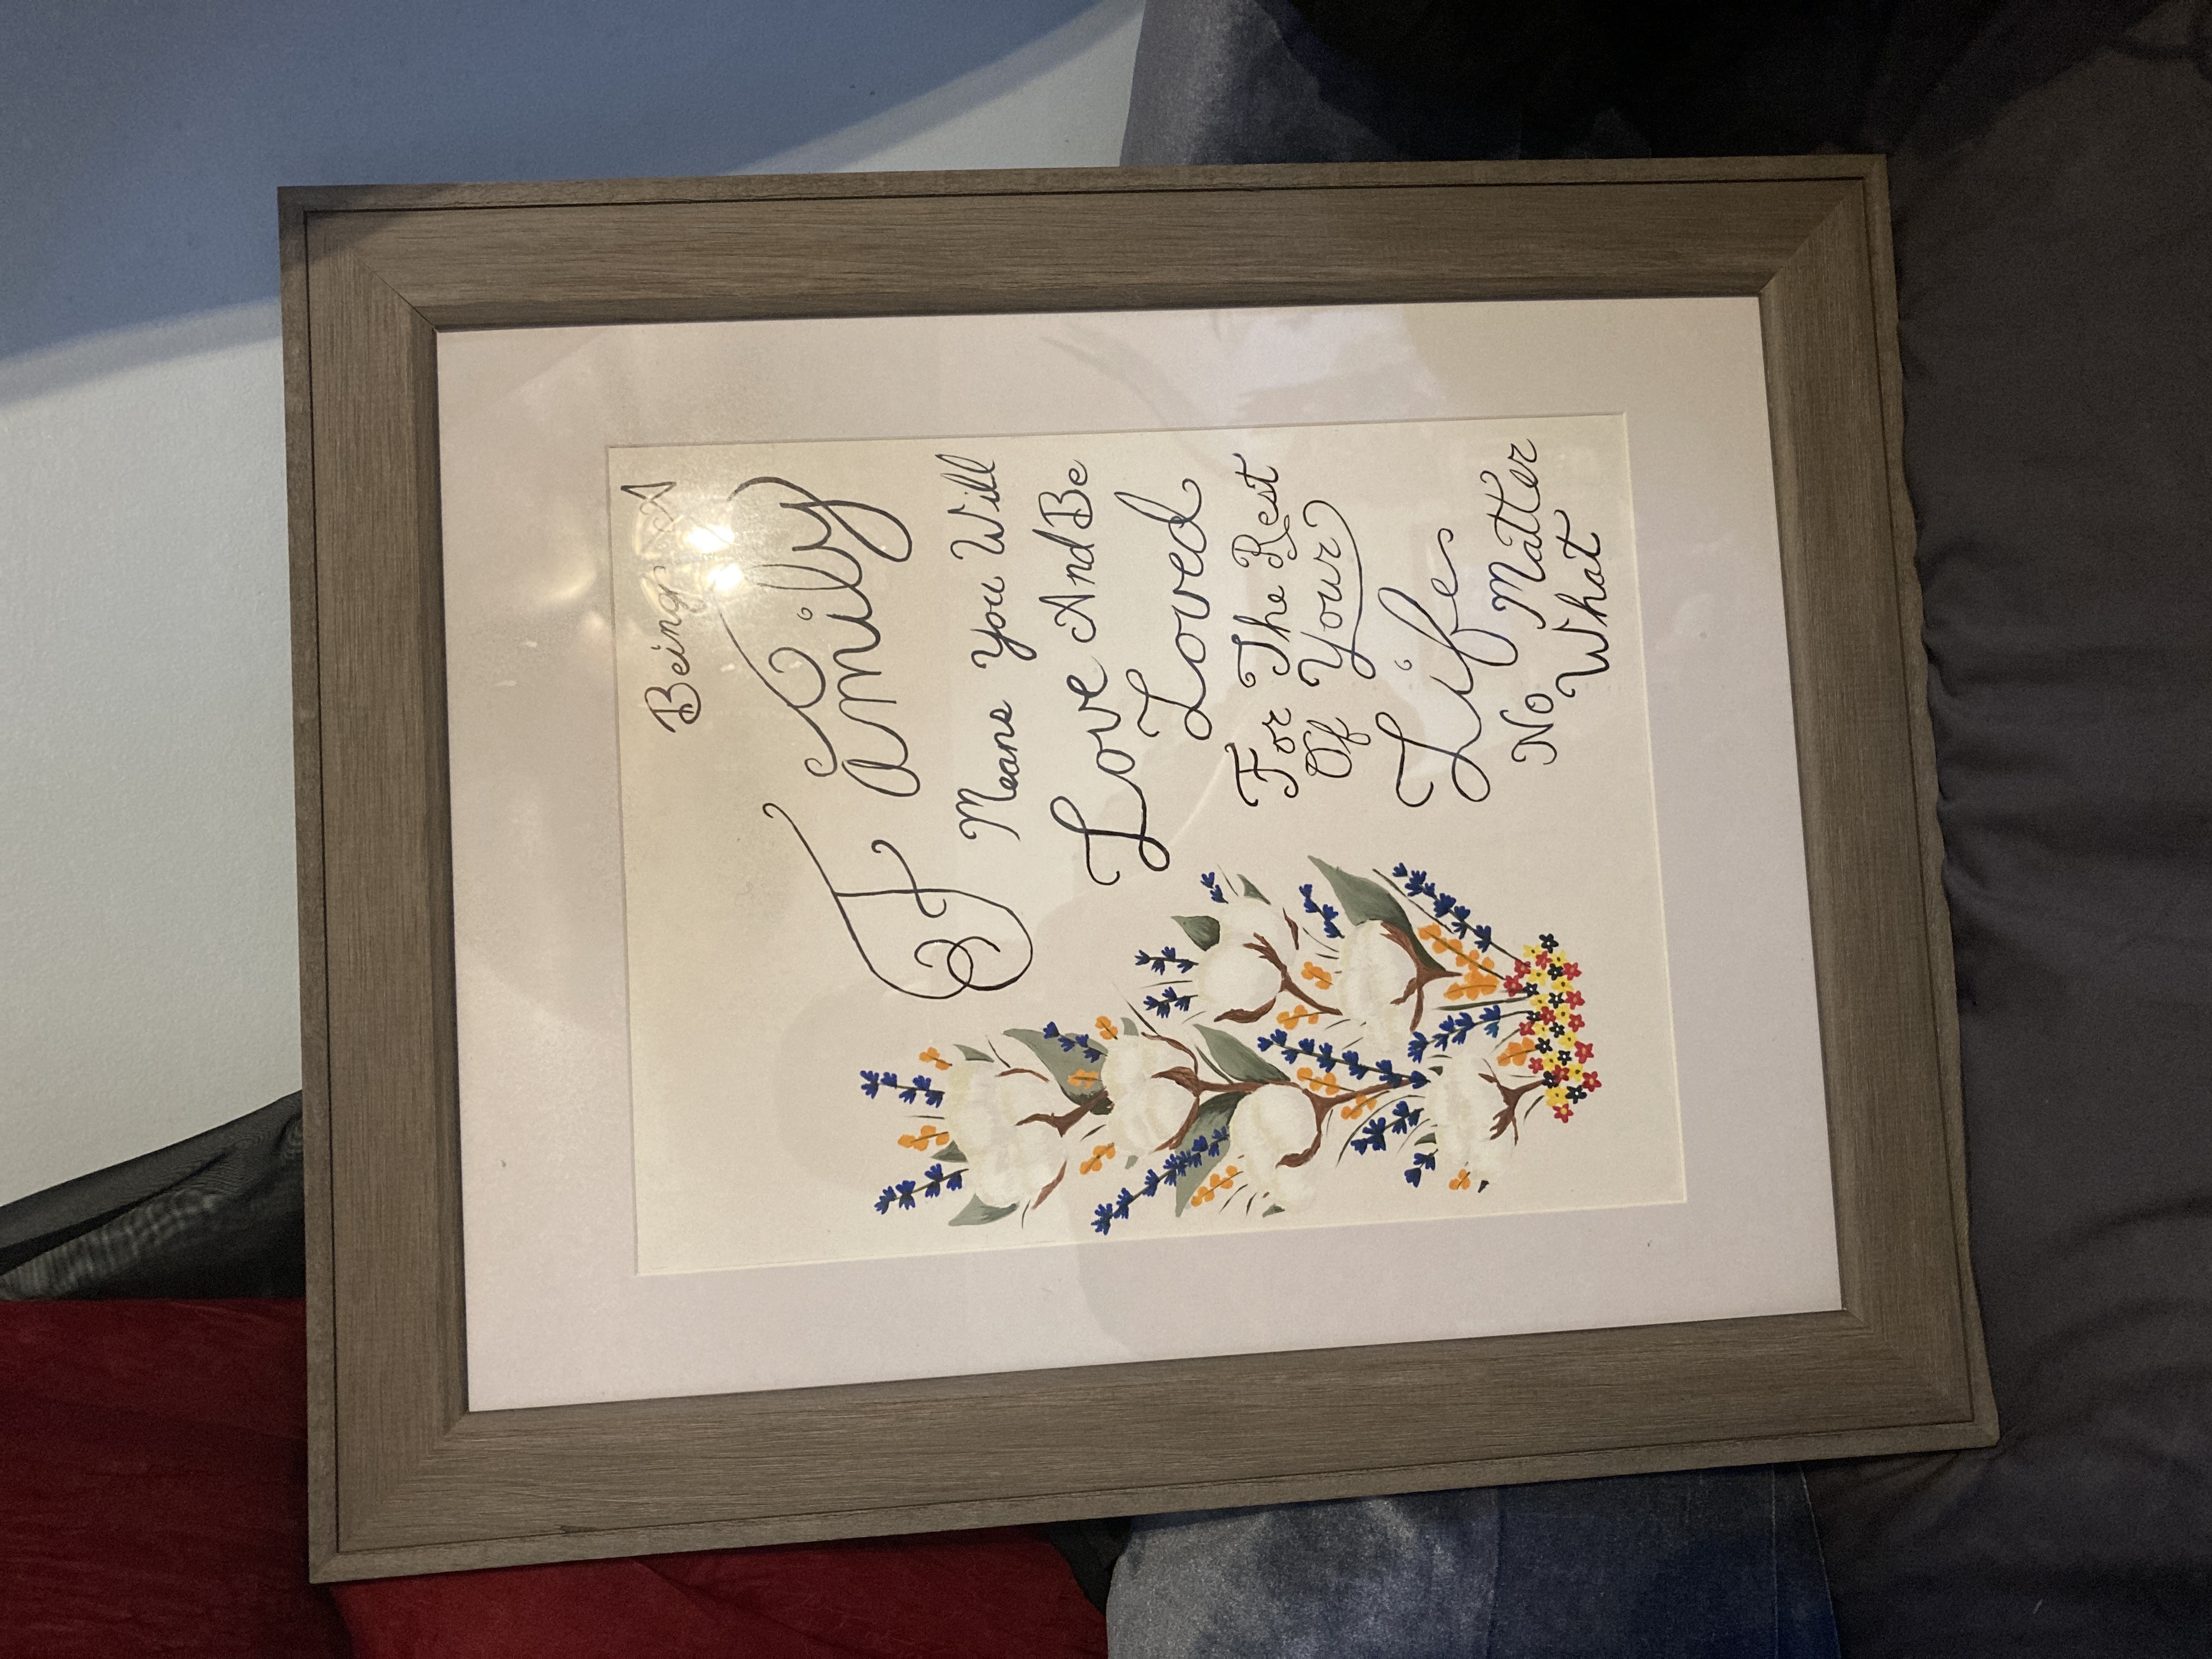 Being A
Family
Means You Will
Love And Be
Loved
For The Rest
Of Your
Life
No Matter
What